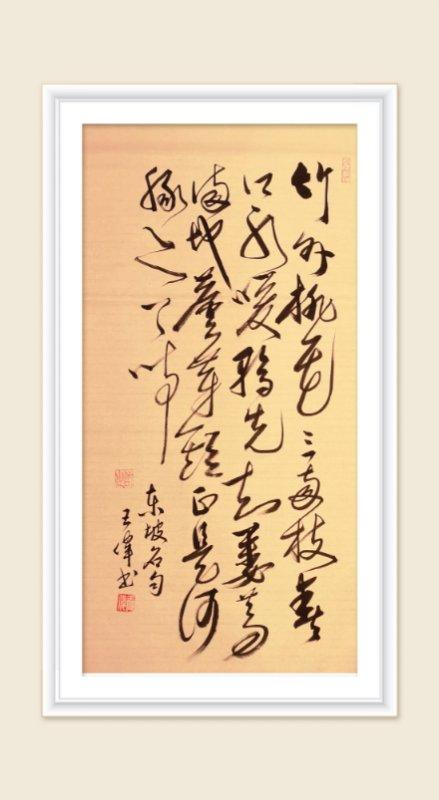 竹外桃花三两枝春
江水暖鸭先知蒌蒿
满地蘆芽短正是河
豚欲上时
东坡名句
王伟书